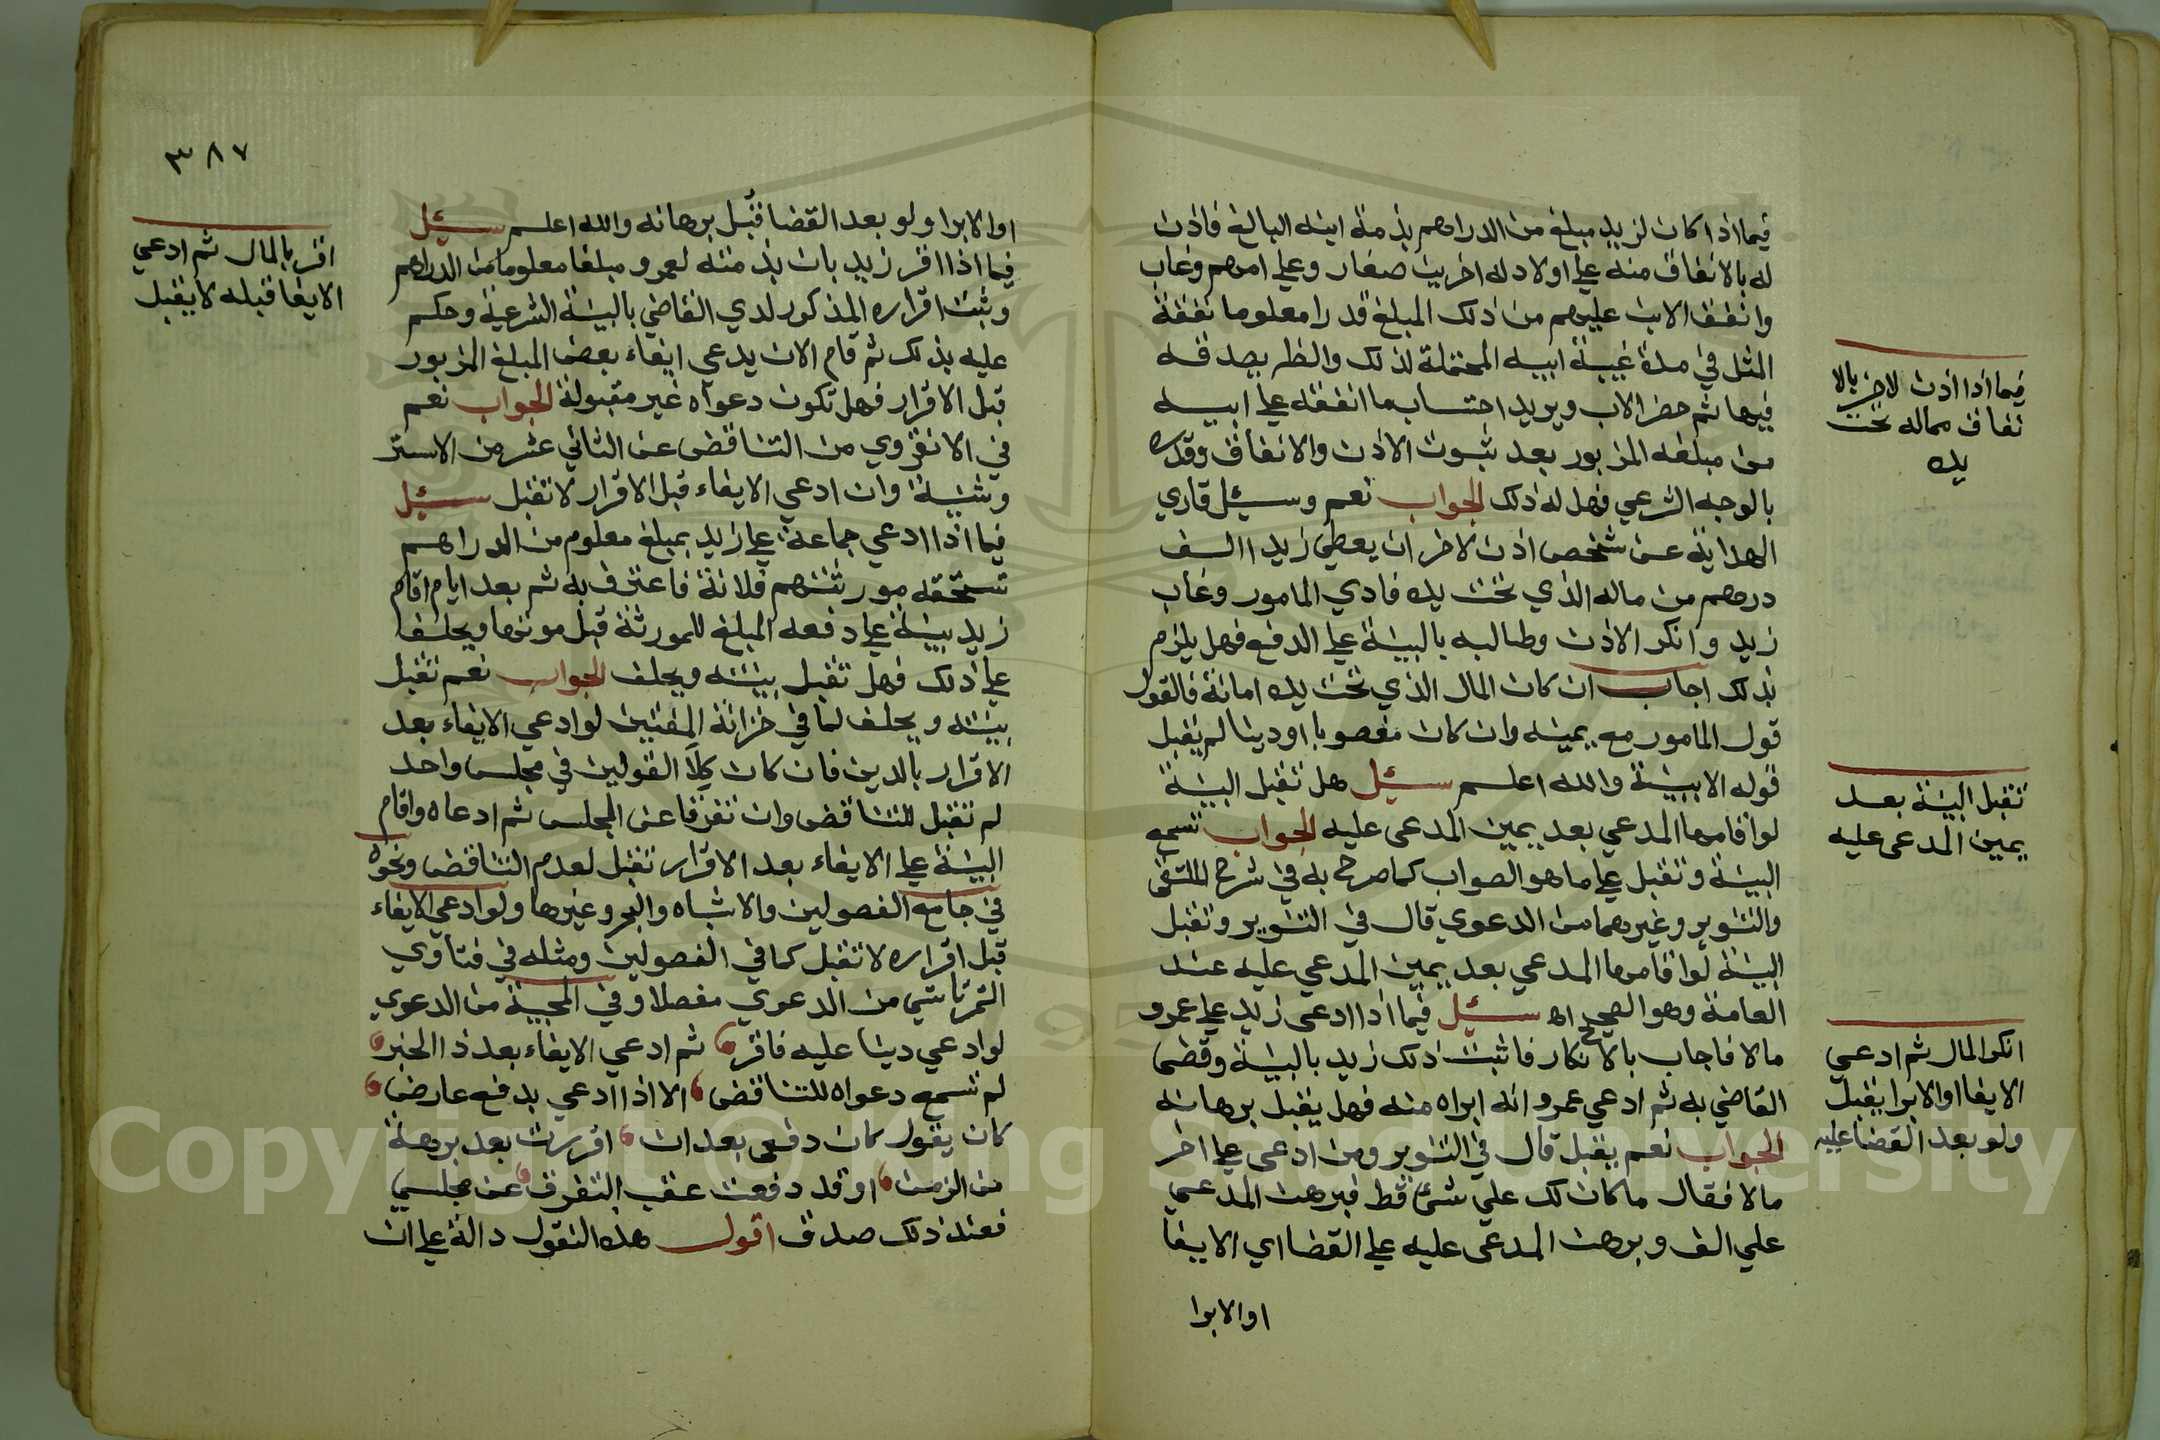 فيما اذا كان لزيد مبلغ من الدراهم بذمة ابنه البالغ فاذن
له بالانفاق منه علي اولاد له اخرين صغار وعلي امهم وغاب
وانفق الابن عليهم من ذلك المبلغ قدرا معلوما نفقة
المثل في مدة غيبة ابيه المحتملة لذلك والظاهر يصدقه
فيها ثم حضر الاب ويريد احتساب ما انفقه علي ابيه
من مبلغه المزبور بعد ثبوت الاذن والانفاق وقدره
بالوجه الشرعي فهل له ذلك الجواب نعم وسئل قاري
الهداية عن شخص اذن لاخر ان يعطي زيدا الف
درهم من ماله الذي تحت يده فادي المامور وغاب
زيد وانكر الاذن وطالبه بالبينة علي الدفع فهل يلزم
بذلك اجاب ان كان المال الذي تحت يده امانة فالقول
قول المامور مع يمينه وان كان مغصوبا او دينا لم يقبل
قوله الا ببينة والله اعلم سئل هل تقبل البينة
لو اقامها المدعي بعد يمين المدعى عليه الجواب تسمع
البينة وتقبل علي ما هو الصواب كما صرح به في شرح الملتقى
والتنوير وغيرهما من الدعوي قال في التنوير وتقبل
البينة لو اقامها المدعي بعد يمين المدعي عليه عند
العامة وهو الصحيح اه سئل فيما اذا ادعى زيد علي عمرو
مالا فاجاب بالانكار فاثبت ذلك زيد بالبينة وقضى
القاضي به ثم ادعي عمرو انه ابراه منه فهل يقبل برهانه
الجواب نعم يقبل قال في التنوير ومن ادعى علي اخر
مالا فقال ما كان لك علي شئ قط فبرهن المدعي
علي الف وبرهن المدعى عليه علي القضا اي الايفا
او الابرا
فيما اذا اذن لاخر بالا
نفاق مماله تحت
يده
تقبل البينة بعد
يمين المدعى عليه
انكر المال ثم ادعي
الايفا او الابرا يقبل
ولو بعد القضا عليه
٣٨٧
او الابرا ولو بعد القضا قبل برهانه والله اعلم سئل
فيما اذا اقر زيد بان بذمته لعمرو مبلغا معلوما من الدراهم
وثبت اقراره المذكور لدي القاضي بالبينة الشرعية وحكم
عليه بذلك ثم قام الان يدعي ايفاء بعض المبلغ المزبور
قبل الاقرار فهل تكون دعواه غير مقبولة الجواب نعم
في الانقروي من التناقض عن الثاني عشر من الاستر
وشنية وان ادعي الايفاء قبل الاقرار لا تقبل سئل
فيما اذا ادعي جماعة علي زيد بمبلغ معلوم من الدراهم
تستحقه مورثتهم فلانة فاعترف به ثم بعد ايام اقام
زيد بينة علي دفعه المبلغ للمورثة قبل موتها ويحلف
علي ذلك فهل تقبل بينته ويحلف الجواب نعم تقبل
بينته ويحلف لما في خزانة المفتين لو ادعي الايفاء بعد
الاقرار بالدين فان كان كلا القولين في مجلس واحد
لم تقبل للتناقض وان تفرقا عن المجلس ثم ادعاه واقام
البينة علي الايفاء بعد الاقرار تقبل لعدم التناقض ونحوه
في جامع الفصولين والاشباه والبحر وغيرها ولو ادعي الايفاء
قبل اقراره لا تقبل كما في الفصولين ومثله في فتاوي
التمرتاشي من الدعوي مفصلا وفي المحبية من الدعوي
لو ادعي دينا عليه فاقر ثم ادعي الايفاء بعد ذا الخبر
لم تسمع دعواه للتناقض الا اذا ادعي بدفع عارض
كان يقول كان دفعى بعد ان اقررت بعد برهة
من الزمن او قد دفعت عقب التفرق عن مجلسي
فعند ذلك صدق اقول هذه النقول دالة علي ان
اقر بالمال ثم ادعي
الايفا قبله لا يقبل
Copyright © King Saud University